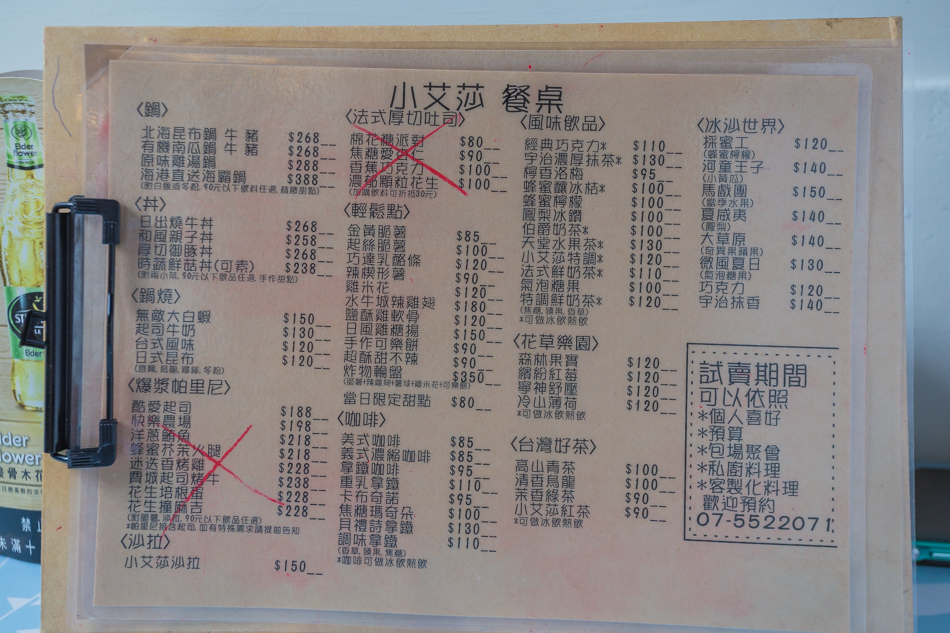 小艾莎 餐桌
〈鍋〉
北海昆布鍋 牛 豬 $268__
有機南瓜鍋 牛 豬 $268__
原味雞湯鍋 $288__
海港直送海霸鍋 $388__
(附白飯或冬粉, 90元以下飲料任選, 精緻甜點)
〈丼〉
日出燒牛丼 $268__
和風親子丼 $258__
厚切御豚丼 $268__
時蔬鮮菇丼(可素) $238__
(附兩小菜, 90元以下飲品任選, 手作甜點)
〈鍋燒〉
無敵大白蝦 $150__
起司牛奶 $130__
台式風味 $120__
日式昆布 $120__
(意麵, 烏龍, 雞絲, 冬粉)
〈爆漿帕里尼〉
酷愛起司 $188__
快樂農場 $198__
洋蔥鮪魚 $218__
蜂蜜芥茉火腿 $218__
迷迭香烤雞 $228__
費城起司烤牛 $238__
花生培根蛋 $228__
花生撞麻吉 $228__
(附脆薯, 沙拉, 90元以下飲品任選)
*帕里尼皆含起司, 如有特殊需求請提前告知
〈沙拉〉
小艾莎沙拉 $150__
〈法式厚切吐司〉
棉花糖派對 $80__
焦糖愛 $90__
香蕉巧克力 $100__
濃郁顆粒花生 $100__
(加購飲料可折抵30元)
〈輕鬆點〉
金黃脆薯 $85__
起絲脆薯 $100__
巧達乳酪條 $120__
辣楔形薯 $90__
雞米花 $120__
水牛城辣雞翅 $180__
鹽酥雞軟骨 $120__
日風雞糖揚 $150__
手作可樂餅 $90__
超酥甜不辣 $90__
炸物輪盤 $350__
(脆薯+辣雞翅+薯球+雞米花+可樂餅)
當日限定甜點 $80__
〈咖啡〉
義式咖啡 $85__
義式濃縮咖啡 $85__
拿鐵咖啡 $95__
重乳拿鐵 $110__
卡布奇諾 $95__
焦糖瑪奇朵 $100__
貝禮詩拿鐵 $130__
調味拿鐵 $110__
(香草, 榛果, 焦糖)
*咖啡可做冰飲熱飲
〈風味飲品〉
經典巧克力* $110__
宇治濃厚抹茶* $130__
檸香洛梅 $95__
蜂蜜釀冰桔* $100__
蜂蜜檸檬 $100__
鳳梨冰鑽 $100__
伯爵奶茶* $100__
天堂水果茶* $130__
小艾莎特調* $120__
法式鮮奶茶* $110__
氣泡糖果 $100__
特調鮮奶茶* $120__
(焦糖, 榛果, 香草)
*可做冰飲熱飲
〈花草樂園〉
森林果實 $120__
繽紛紅莓 $120__
寧神舒壓 $120__
冷山薄荷 $120__
*可做冰飲熱飲
〈台灣好茶〉
高山青茶 $100__
清香烏龍 $100__
茉香綠茶 $90__
小艾莎紅茶 $90__
*可做冰飲熱飲
〈冰沙世界〉
採蜜工 $120__
(蜂蜜檸檬)
河童王子 $140__
(小黃瓜)
馬戲團 $150__
(當季水果)
夏威夷 $140__
(鳳梨)
大草原 $140__
(奇異果蘋果)
微風夏日 $130__
(氣泡糖果)
巧克力 $120__
宇治抹香 $140__
試賣期間
可以依照
*個人喜好
*預算
*包場聚會
*私廚料理
*客製化料理
歡迎預約
07-5522071
Elder
flower